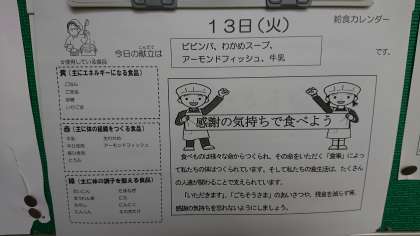 給食カレンダー
13日(火)
こんだて
今日の献立は
ビビンバ、わかめスープ、
アーモンドフィッシュ、牛乳
です。
黄(主にエネルギーになる食品)
ごはん
ごま油
砂糖
赤(主に体の組織をつくる食品)
牛乳
アーモンドフィッシュ
緑(主に体の調子を整える食品)
にんじん
にんにく
感謝の気持ちで食べよう
食べものは様々な命からつくられ、その命をいただく「食事」によっ
て私たちの体はつくられています。そして私たちの食生活は、たくさん
の人達が関わることで支えられています。
「いただきます」、「ごちそうさま」のあいさつや、残金を減らす等、
感謝の気持ちを忘れないようにしましょう。